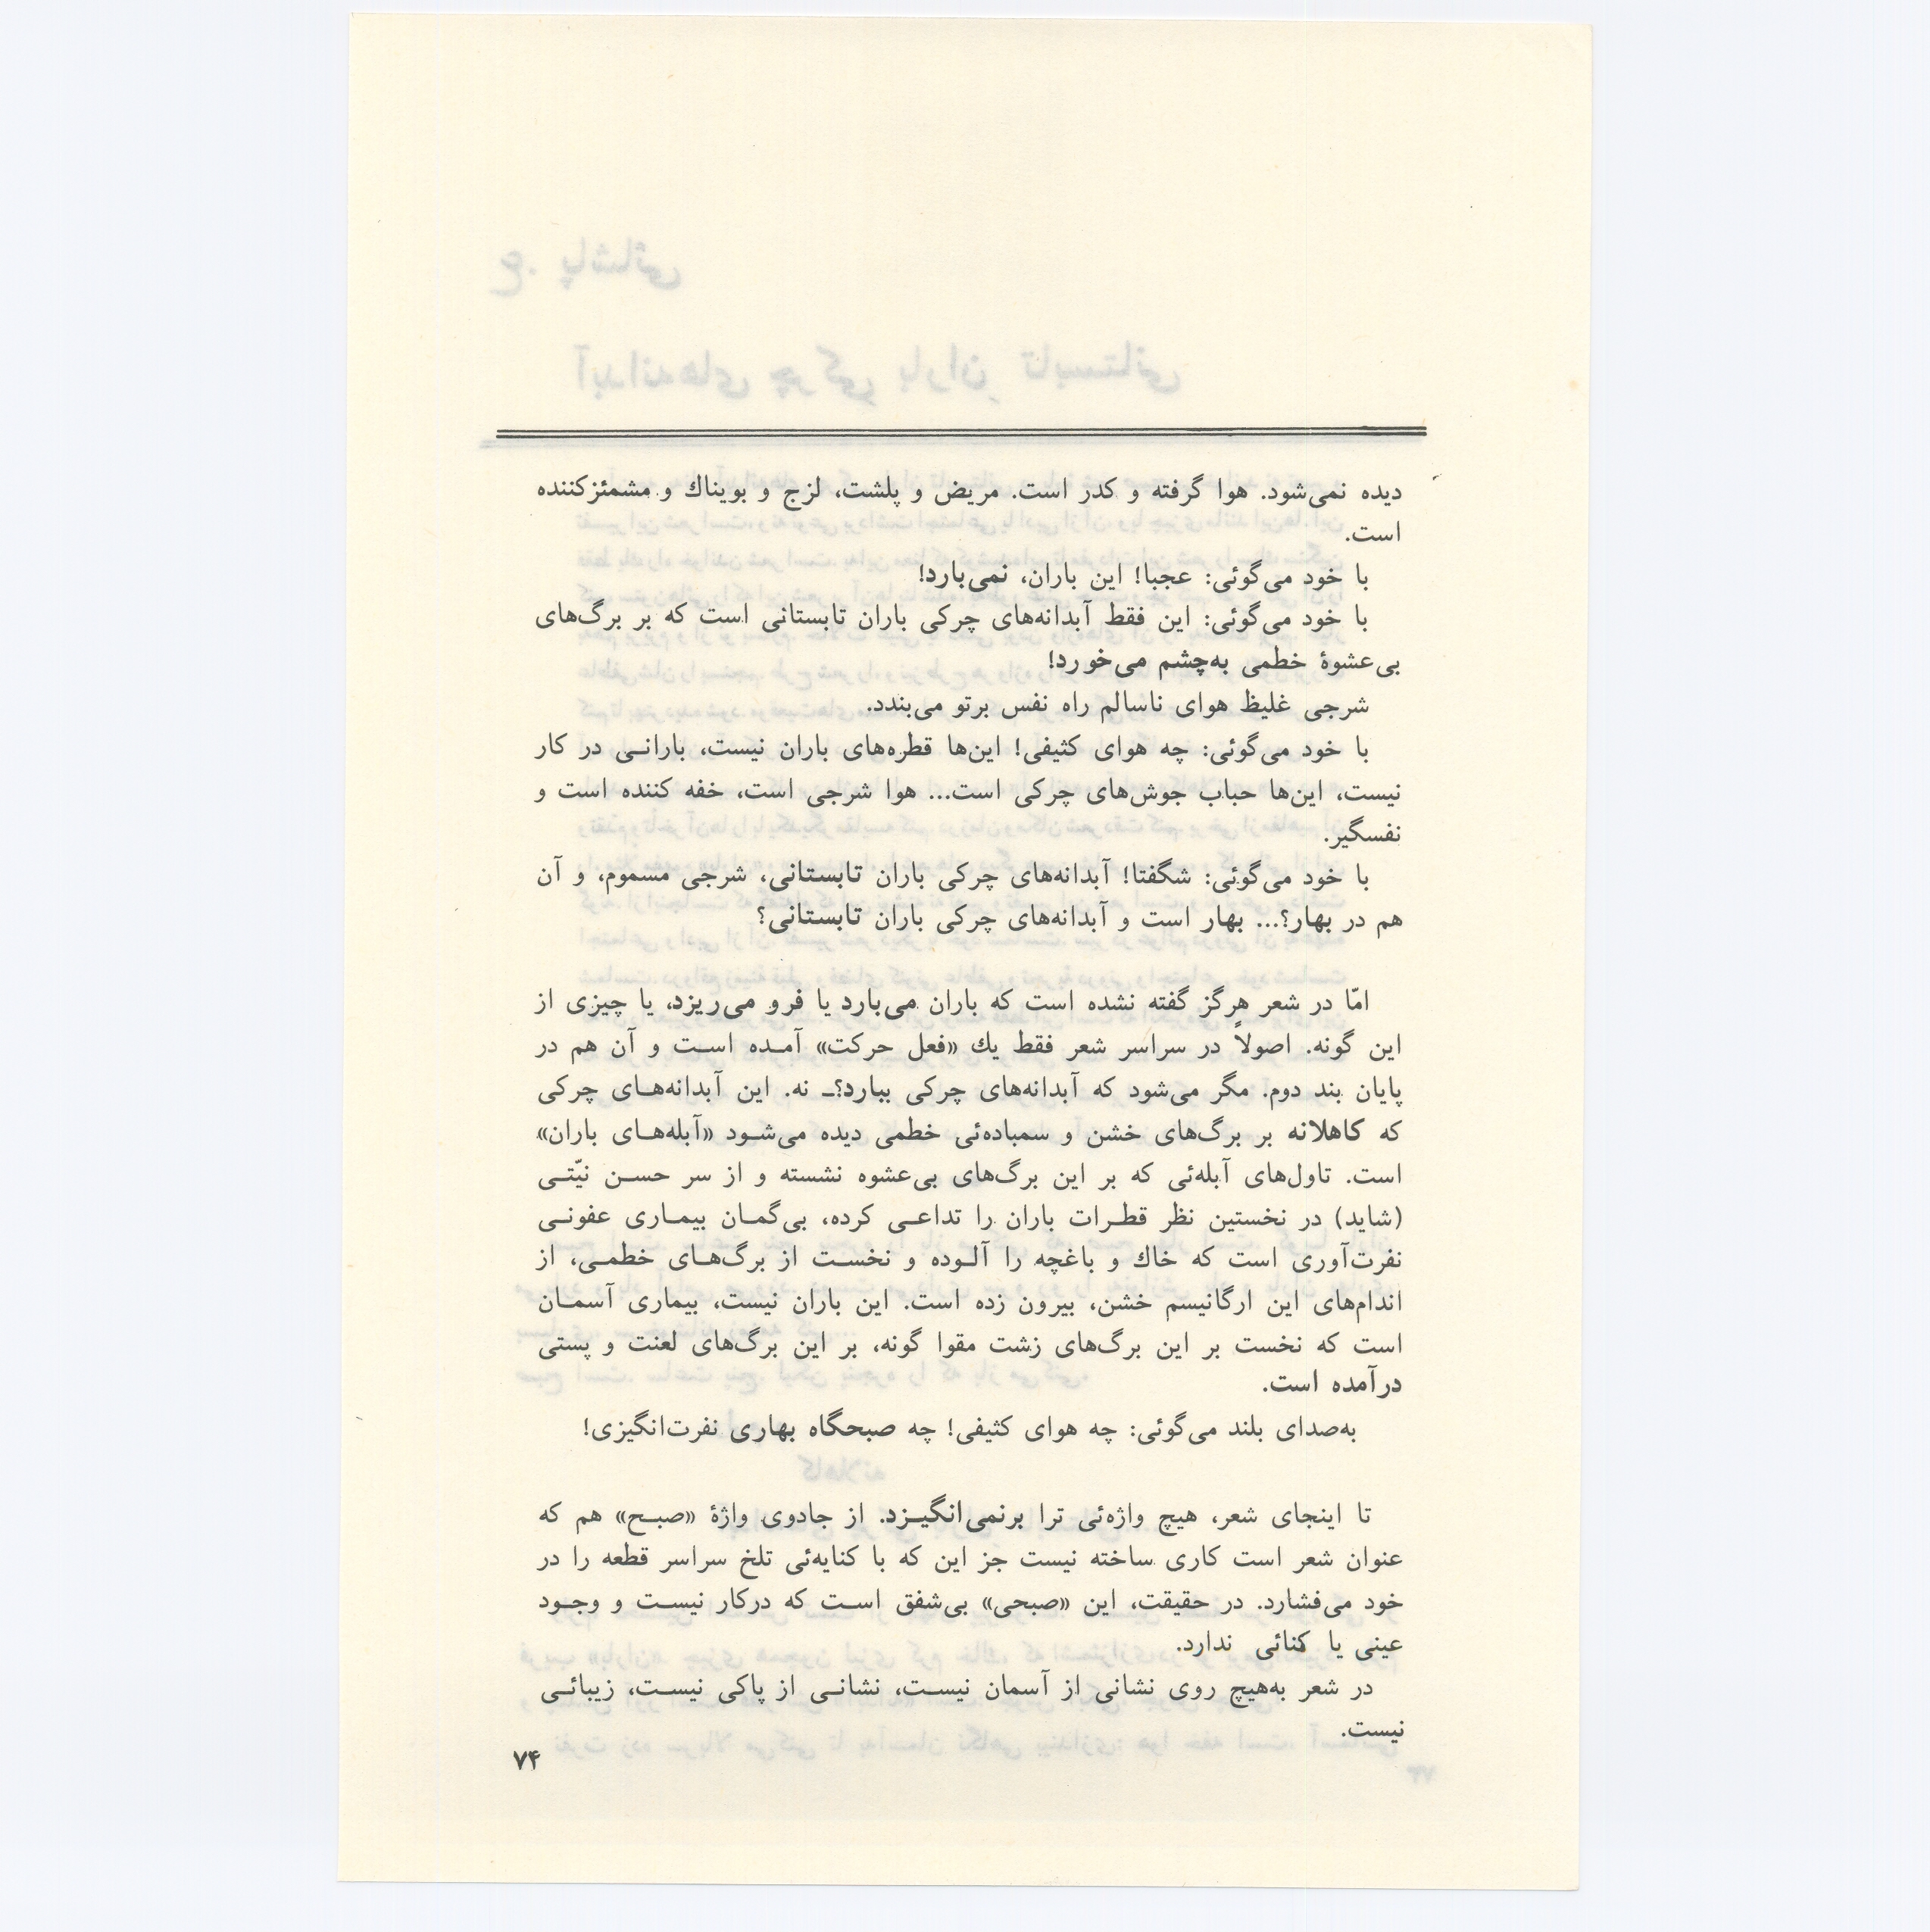 دیده نمی‌شود. هوا گرفته و کدر است. مریض و پلشت، لزج و بویناك و مشمئزکننده
است.
با خود می‌گوئی: عجبا! این باران، نمی‌بارد!
با خود می‌گوئی: این فقط آبدانه‌های چرکی باران تابستانی است که بر برگ‌های
بی‌عشوهٔ خطمی به‌چشم می‌خورد!
شرجی غلیظ هوای ناسالم راه نفس برتو می‌بندد.
با خود می‌گوئی: چه هوای کثیفی! این‌ها قطره‌های باران نیست، بارانی در کار
نیست، این‌ها حباب جوش‌های چرکی است... هوا شرجی است، خفه کننده است و
نفسگیر.
با خود می‌گوئی: شگفتا! آبدانه‌های چرکی باران تابستانی، شرجی مسموم، و آن
هم در بهار؟... بهار است و آبدانه‌های چرکی باران تابستانی؟
امّا در شعر هرگز گفته نشده است که باران می‌بارد یا فرو می‌ریزد، یا چیزی از
این گونه. اصولاً در سراسر شعر فقط یك «فعل حرکت» آمده است و آن هم در
پایان بند دوم. مگر می‌شود که آبدانه‌های چرکی ببارد؟ـ نه. این آبدانه‌های چرکی
که کاهلانه بر برگ‌های خشن و سمباده‌ئی خطمی دیده می‌شود «آبله‌های باران»
است. تاول‌های آبله‌ئی که بر این برگ‌های بی‌عشوه نشسته و از سر حسن نیّتی
(شاید) در نخستین نظر قطرات باران را تداعی کرده، بی‌گمان بیماری عفونی
نفرت‌آوری است که خاك و باغچه را آلوده و نخست از برگ‌های خطمی، از
اندام‌های این ارگانیسم خشن، بیرون زده است. این باران نیست، بیماری آسمان
است که نخست بر این برگ‌های زشت مقوا گونه، بر این برگ‌های لعنت و پستی
درآمده است.
به‌صدای بلند می‌گوئی: چه هوای کثیفی! چه صبحگاه بهاری نفرت‌انگیزی!
تا اینجای شعر، هیچ واژه‌ئی ترا برنمی‌انگیزد. از جادوی واژهٔ «صبح» هم که
عنوان شعر است کاری ساخته نیست جز این که با کنایه‌ئی تلخ سراسر قطعه را در
خود می‌فشارد. در حقیقت، این «صبحی» بی‌شفق است که درکار نیست و وجود
عینی یا کنائی ندارد.
در شعر به‌هیچ روی نشانی از آسمان نیست، نشانی از پاکی نیست، زیبائی
نیست.
۷۴